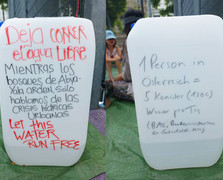 Deja CORRER
el agua LIBRE
MIENTRAS los
bosques de Abya-
Yala arden solo
hablamos de las
CRISIS hídricas
Urbanas
Let this
WATER
RUN FREE
1 Person in
Österreich =
5 Kanister (100%)
Wasser pro Tag